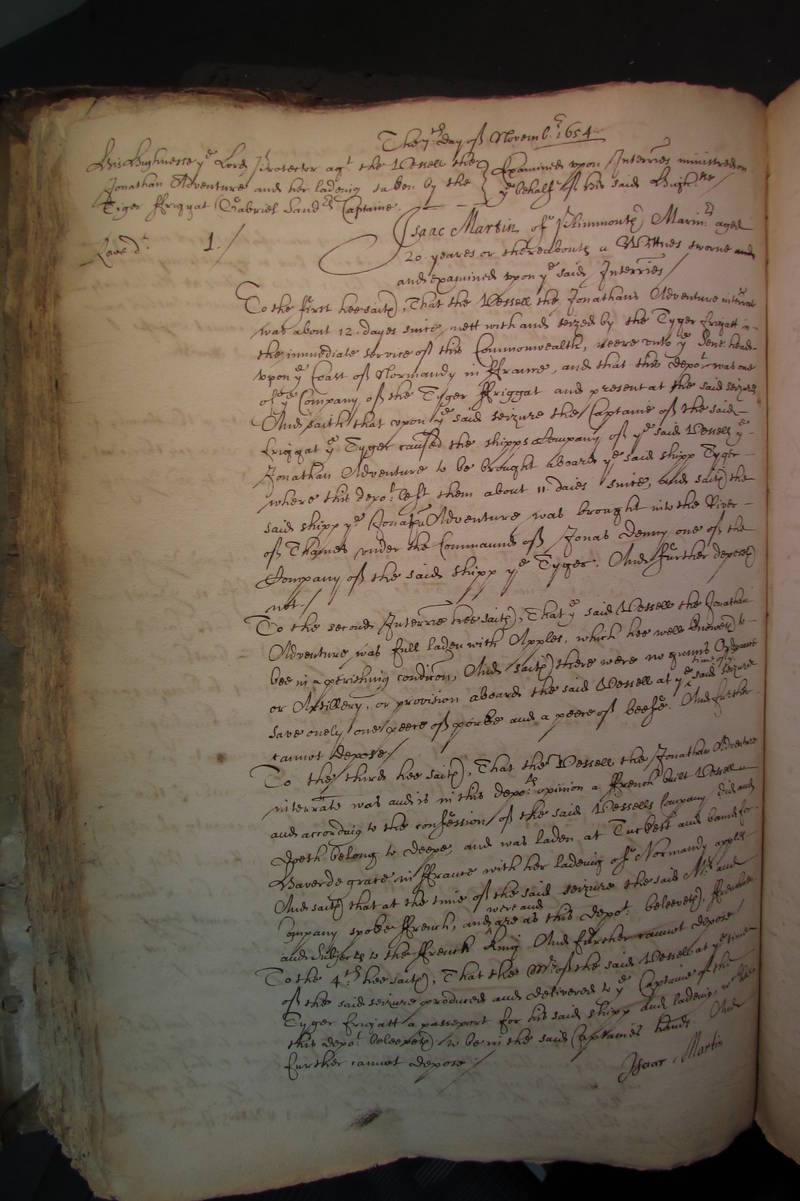 The 7th Day of Novemb:r 1654
His Highnesse ye Lord Protector agt the Vessell the
Jonathan Adventure and her ladeing taken by the
Tiger ffriggat Gabriel Sand:rs Captaine
Examined upon Interries ministred on
ye behalfe of his said Highnes
1./
Isaac Martin of Marin:r aged
20 yeares or thereabouts a Wittnes sworne and
and examined upon ye said Interries /
To the first hee saith, That the Vessell the Jonathans Adventure interrate
was about 12. dayes since, mett with and seized by the Tyger frigatt in
the imediate service of this Commonwealth, neere unto ye head
upon ye Coast of Normandy in ffrance, and that this depot was one
of ye Company of the Tyger ffriggat and present at the said seizure
And saith that upon ye said seizure the Captaine of the said
friggat ye Tyger caused the shipps Company of ye said Vessell ye
Jonathan Adventure to be brought aboard ye said shipp Tyger
where this depot left them about 11. daies since, and saith the
said shipp ye Jonathan Adventure was brought into the River
of Thames under the Commaund of Jonas Denny one of the
Company of the said shipp ye Tyger. And further deposeth
not./
To the second Interrie hee saith, That ye said Vessell the Jonathan
Adventure was full laden with Apples, which hee well knoweth to
bee in a perishing condicon, And saith there were no gunns Ordnance
or Artillery, or provision aboard the said Vessell at ye time of ye said seizure
save onely one peece of porke and a peece of beefe. And further
cannot depose /
To the third hee saith, That the Vessell the Jonathan Adventure
interrate was and is in this depots opinion a ffrench built Vessell
and according to the confession of the said Vessells Company did and
doeth belong to Deepe, and was laden at and bound for
Haverdegrace in ffrance with her ladeing of Normandy apples
And saith that at the time of the said seizure the said Mr and
Company spoke ffrench, and were and are as this depot beleeveth, ffrenchmen
and Subjects to the ffrench King. And further cannot depose /
To the 4th hee saith, That the Mr of the said Vessell at ye time
of the said seizure produced and delivered to ye Captaine of the
Tyger frigatt a passeport for his said shipp and ladeing,
this depot beleeveth to be in the said Captaines hands And
further cannot depose /
Isaac Martin